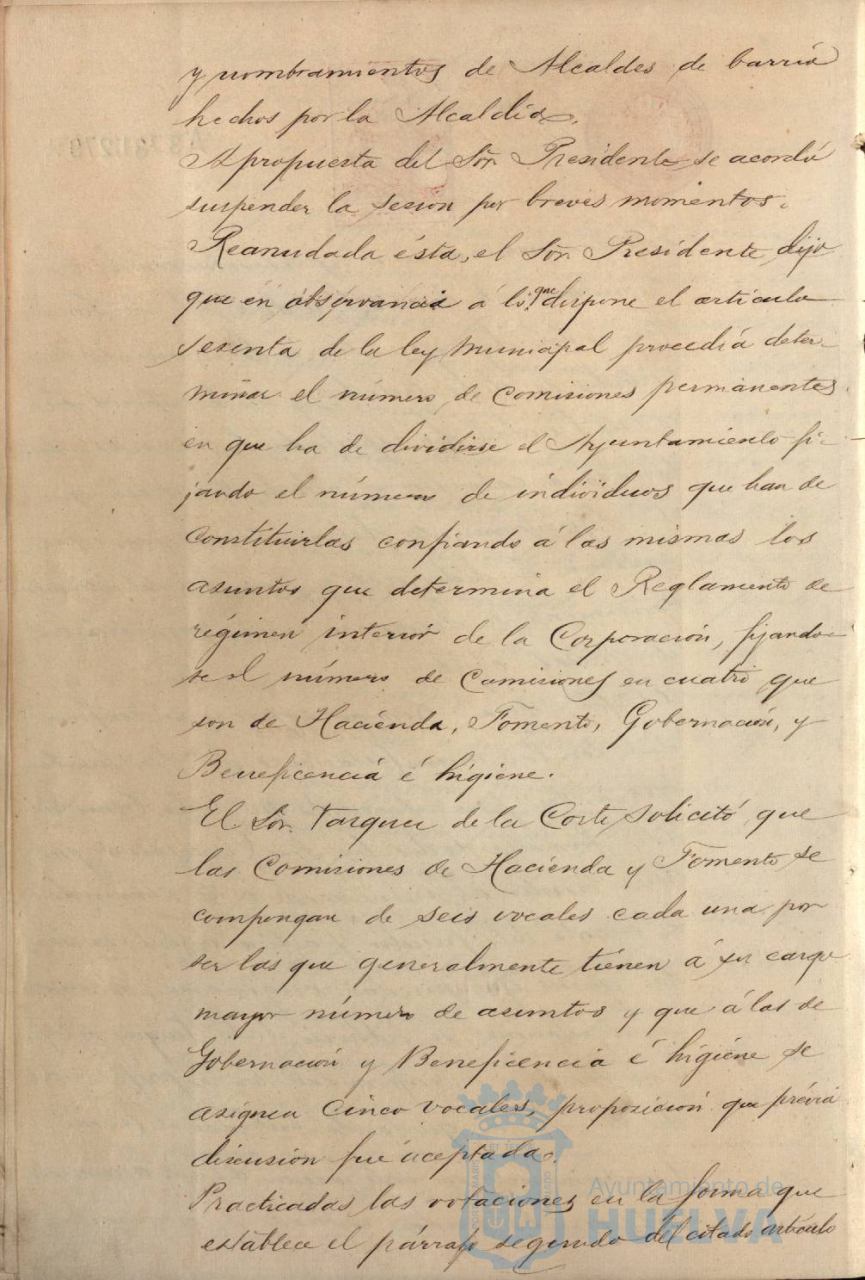 y nombramientos de Alcaldes de barrio
hechos por la Alcaldia.
A propuesta del Sor. Presidente se acordó
suspender la sesion por breves momentos.
Reanudada ésta, el Sor. Presidente dijo
que en observancia á lo que dispone el artículo
sesenta de la ley Municipal procedia deter-
minar el número de Comisiones permanentes
en que ha de dividirse el Ayuntamiento fi-
jando el número de individuos que han de
constituirlas confiando á las mismas los
asuntos que determina el Reglamento de
régimen interior de la Corporación, fijando-
se el número de Comisiones en cuatro que
son de Hacienda, Fomento, Gobernación, y
Beneficencia é higiene.
El Sor. de la Corte solicitó que
las Comisiones de Hacienda y Fomento se
compongan de seis vocales cada una por
ser las que generalmente tienen á su cargo
mayor número de asuntos y que á las de
Gobernación y Beneficencia é higiene se
asignen cinco vocales, proposicion que prévia
discusion fué aceptada.
Practicadas las votaciones en la forma que
establece el párrafo segundo del citado artículo
Ayuntamiento de
HUELVA